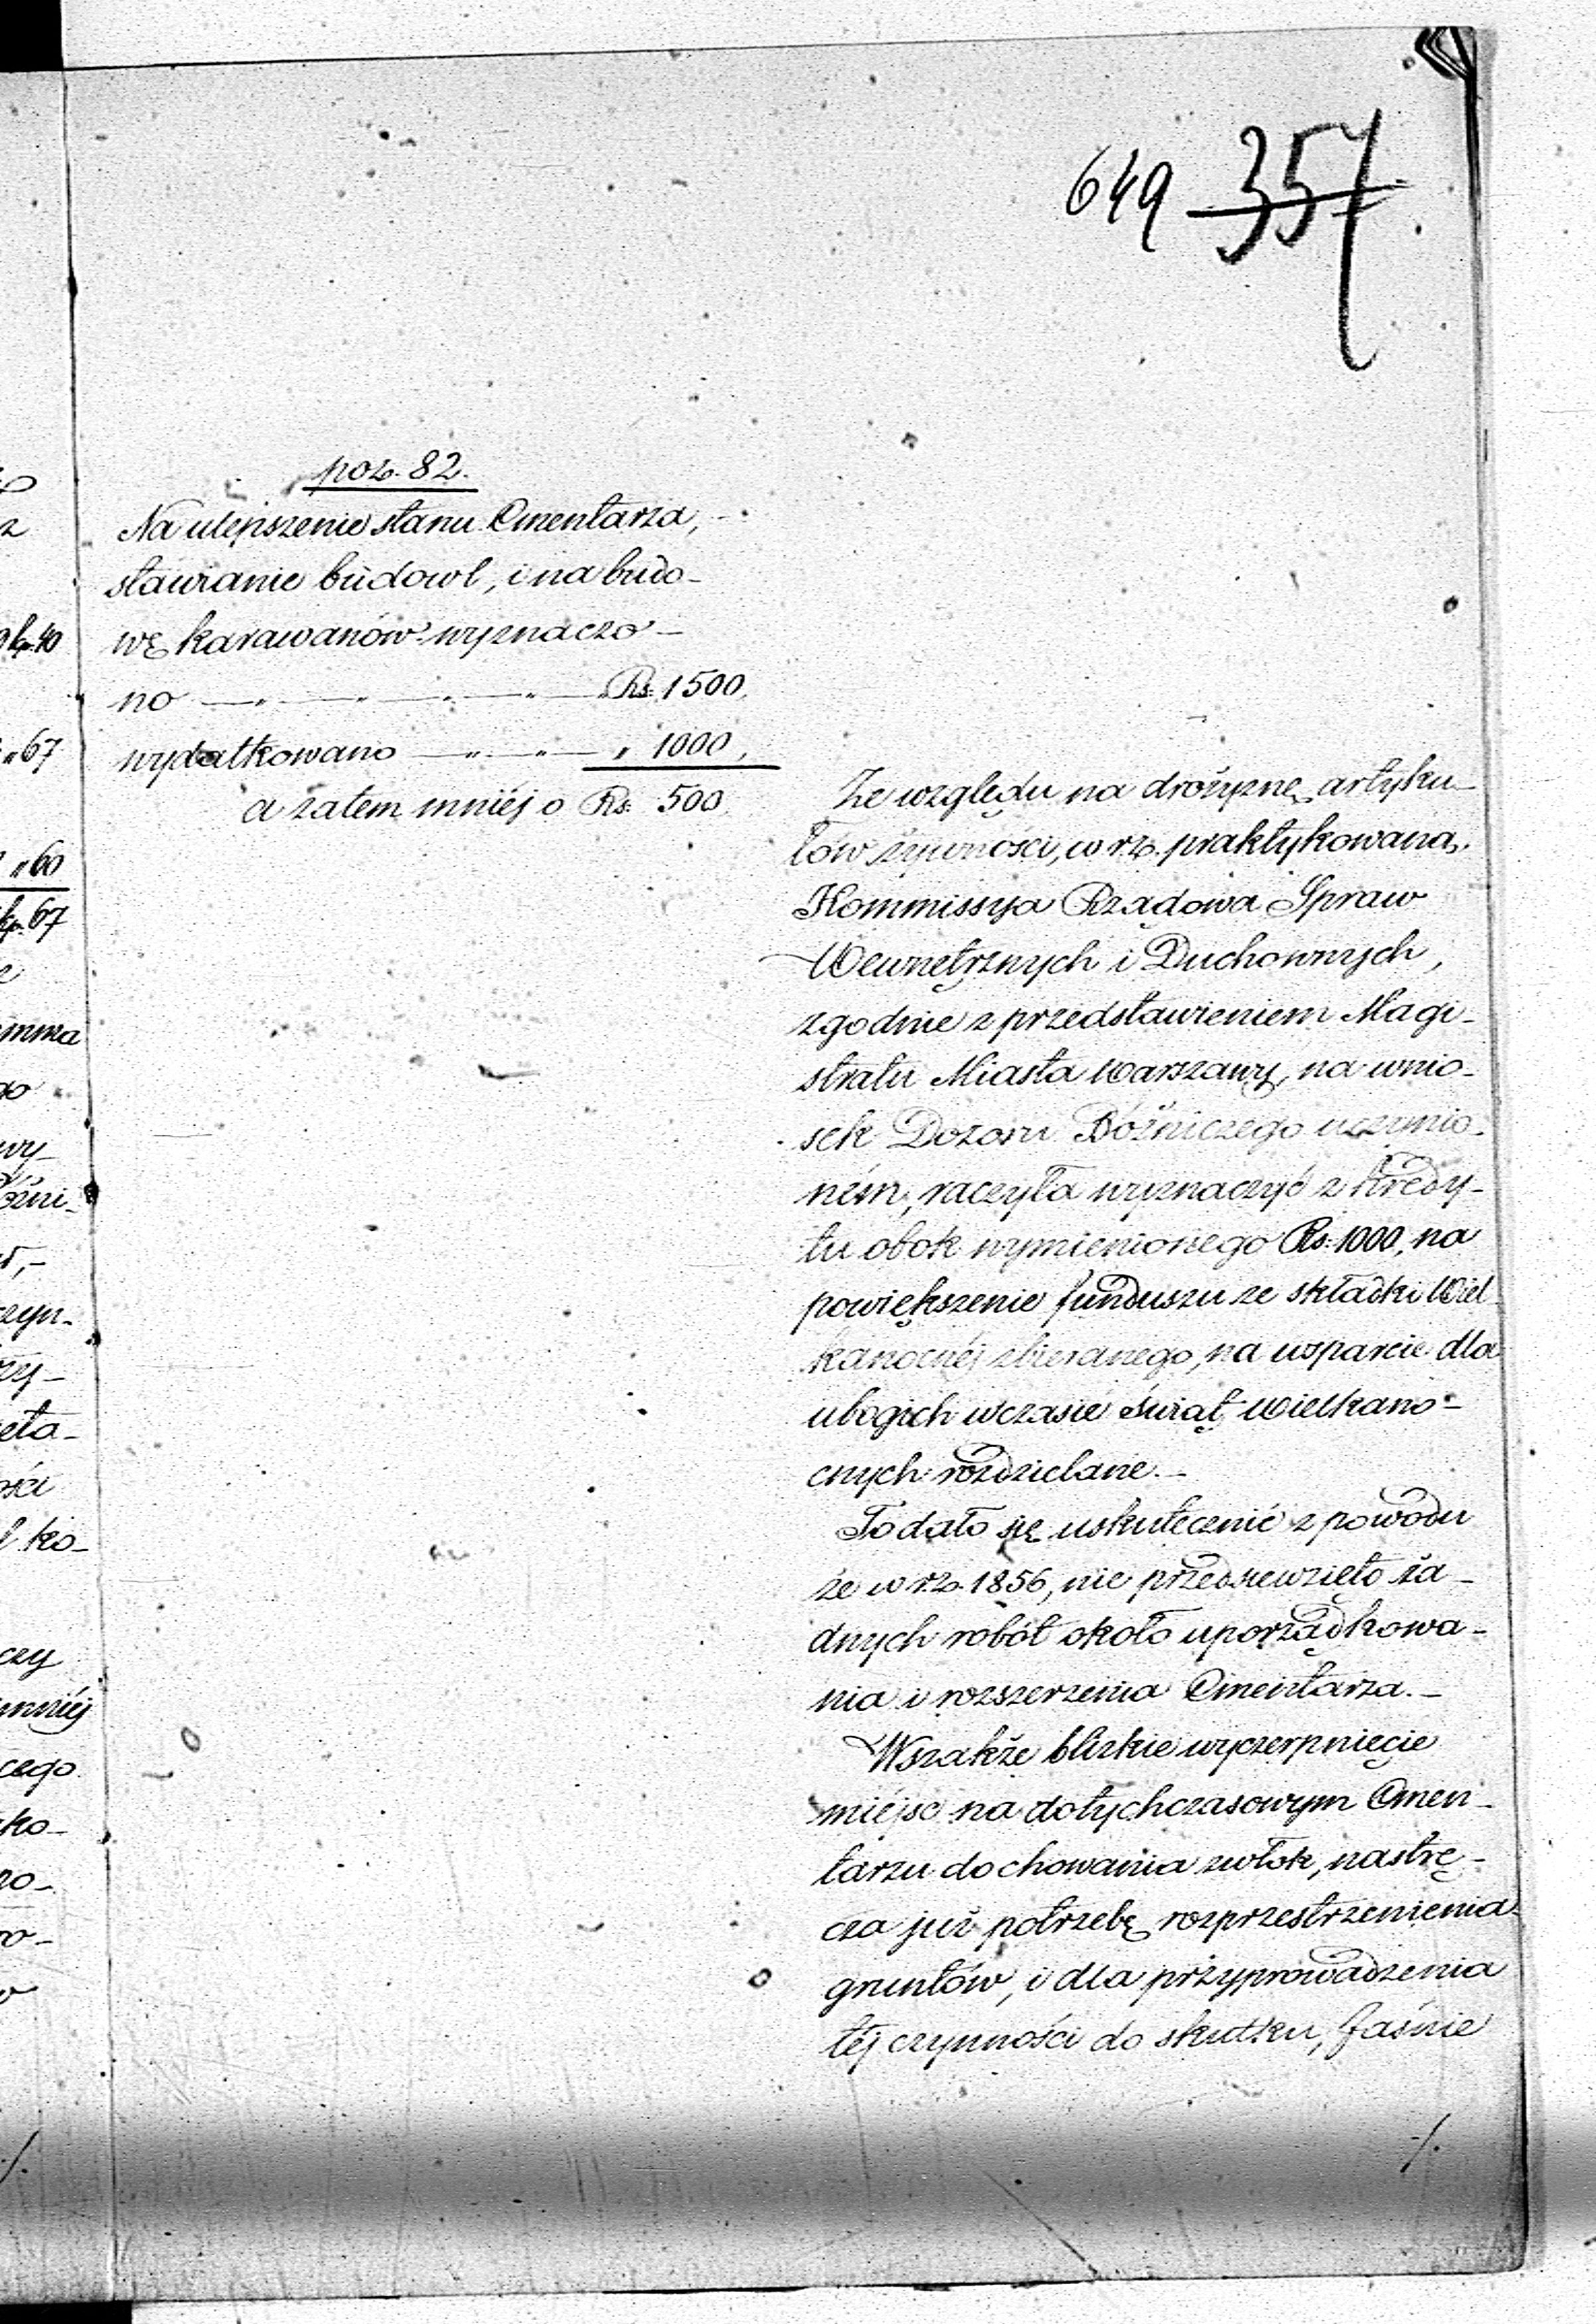 649 357
poz. 82.
Na ulepszenie stanu Cmentarza,
stawianie budowl, i na budo-
wę karawanów wyznaczo-
no — " — " — " — " — Rs: 1500.
wydatkowano — " — " — " 1000,
a zatem mniéj o Rs: 500.
Ze względu na drożyznę artyku-
łów żywności, w r.z. praktykowaną,
Kommissya Rządowa Spraw
Wewnętrznych i Duchownych,
zgodnie z przedstawieniem Magi-
stratu Miasta Warszawy, na wnio-
sek Dozoru Bóźniczego uczynio-
ném, raczyła wyznaczyć z kredy-
tu obok wymienionego Rs: 1000, na
powiększenie funduszu ze składki Wiel-
kanocnéj zbieranego, na wsparcie dla
ubogich w czasie świąt wielkano-
cnych rozdzielane.-
To dało się uskutecznić z powodu
że w r.z. 1856, nie przedsiewzięto ża-
dnych robót około uporządkowa-
nia i rozszerzenia Cmentarza.-
Wszakże blizkie wyczerpnięcie
miejsc na dotychczasowym Cmen-
tarzu do chowania zwłok, nastrę-
cza już potrzebę rozprzestrzenienia
gruntów, i dla przyprowadzenia
téj czynności do skutku, Jaśnie
./.
kp. 40
" 67
" 60
kp. 67
mma
wy-
zyn-
zy-
ęta-
ości
ko-
czy
mniéj
cego
ko-
no-
./.